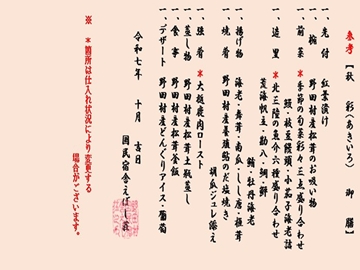 参考【秋 彩〈あきいろ〉 御 膳】
一、先付 紅葉漬け
一、椀 野田村産松茸のお吸い物
一、前菜 *季節の旬菜彩々三点盛り合わせ
鰻・枝豆饅頭・小茄子海老詰
一、造里 *北三陸の魚介六種盛り合わせ
荒海帆立・勘八・鯛・鮃
鮪・牡丹海老
一、揚げ物 海老・舞茸・南瓜・しし唐・椎茸
一、焼肴 野田村産茎珠鮑のみだ焼き
胡瓜ジュレ添え
一、強肴 *大槌鹿肉ロースト
一、蒸し物 野田村産松茸土瓶蒸し
一、食事 野田村産松茸釜飯
一、デザート 野田村産どんぐりアイス・葡萄
令和七年 十月 吉日
国民宿舎えぼし荘
※ *箇所は仕入れ状況により変更する
場合がございます。